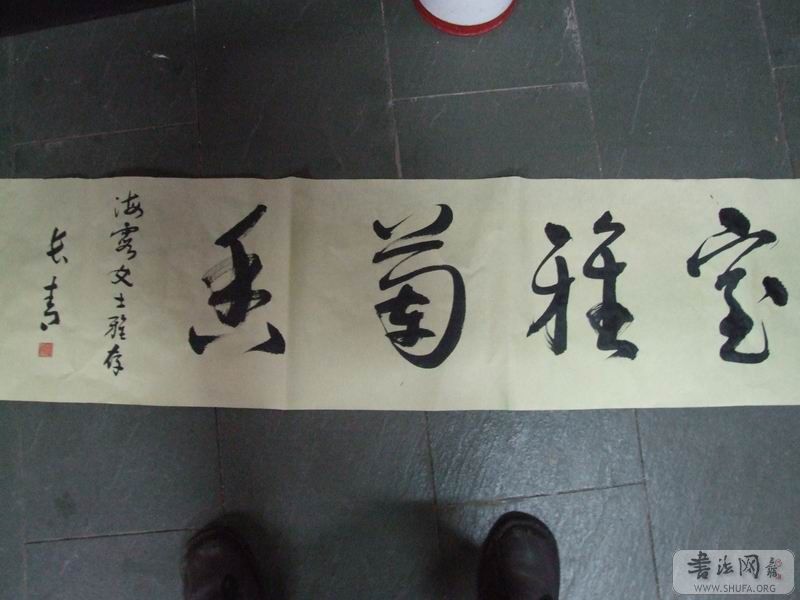 室雅蘭香
海霞女士雅存
长青
書法网
WWW.SHUFA.ORG